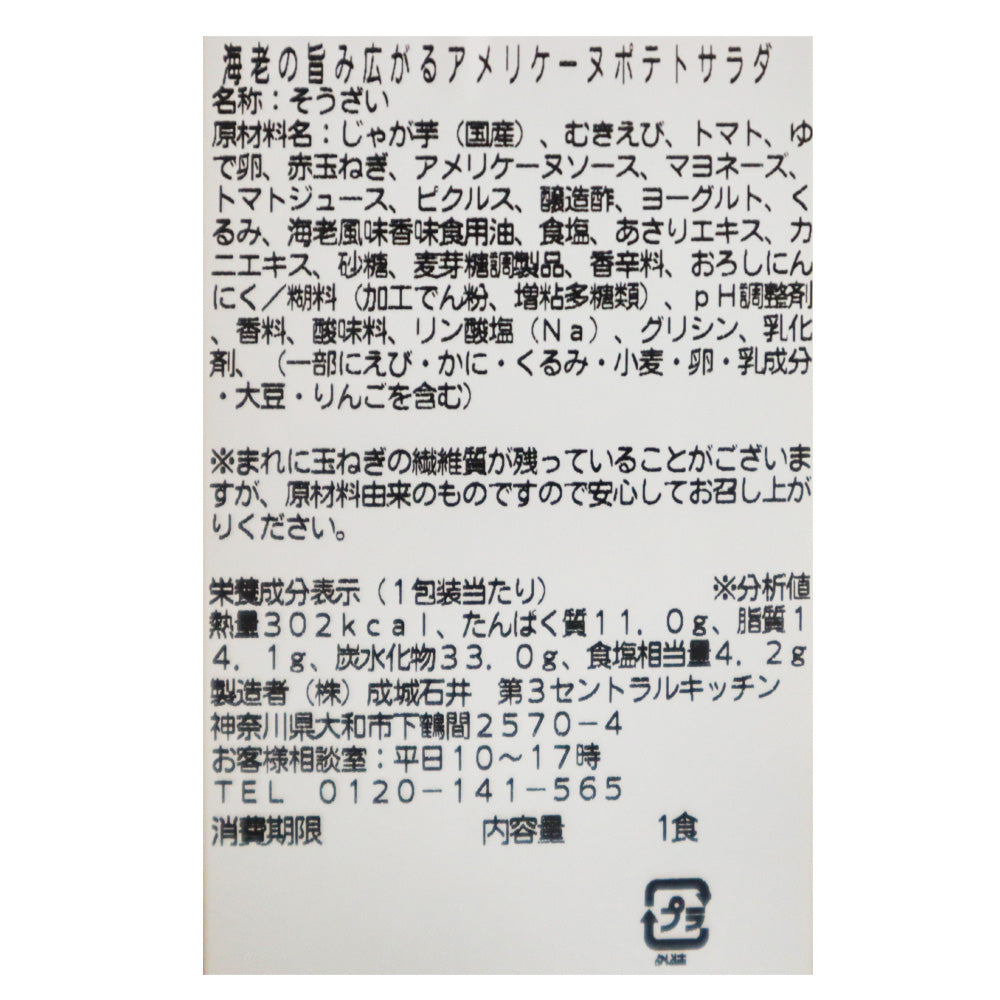 海老の旨み広がるアメリケーヌポテトサラダ
名称：そうざい
原材料名：じゃが芋（国産）、むきえび、トマト、ゆ
で卵、赤玉ねぎ、アメリケーヌソース、マヨネーズ、
トマトジュース、ピクルス、醸造酢、ヨーグルト、く
るみ、海老風味香味食用油、食塩、あさりエキス、カ
ニエキス、砂糖、麦芽糖調製品、香辛料、おろしにん
にく／糊料（加工でん粉、増粘多糖類）、ｐＨ調整剤
、香料、酸味料、リン酸塩（Ｎａ）、グリシン、乳化
剤、（一部にえび・かに・くるみ・小麦・卵・乳成分
・大豆・りんごを含む）
※まれに玉ねぎの繊維質が残っていることがございま
すが、原材料由来のものですので安心してお召し上が
りください。
栄養成分表示（１包装当たり） ※分析値
熱量３０２ｋｃａｌ、たんぱく質１１．０ｇ、脂質１
４．１ｇ、炭水化物３３．０ｇ、食塩相当量４．２ｇ
製造者（株）成城石井　第３セントラルキッチン
神奈川県大和市下鶴間２５７０－４
お客様相談室：平日１０～１７時
ＴＥＬ　０１２０－１４１－５６５
消費期限 内容量 １食
プラ
外装